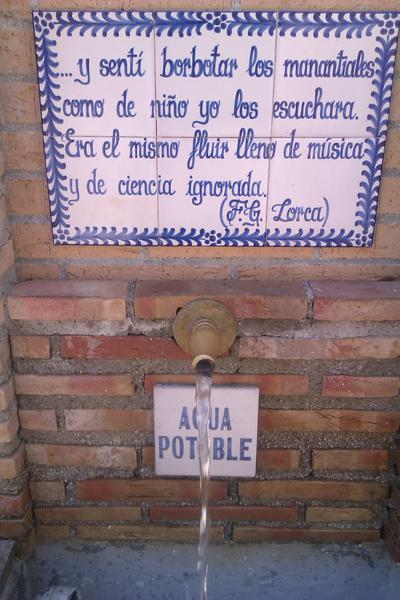 ...y sentí borbotar los manantiales
como de niño yo los escuchara.
Era el mismo fluir lleno de música
y de ciencia ignorada.
(F.G. Lorca)
AGUA
POTABLE